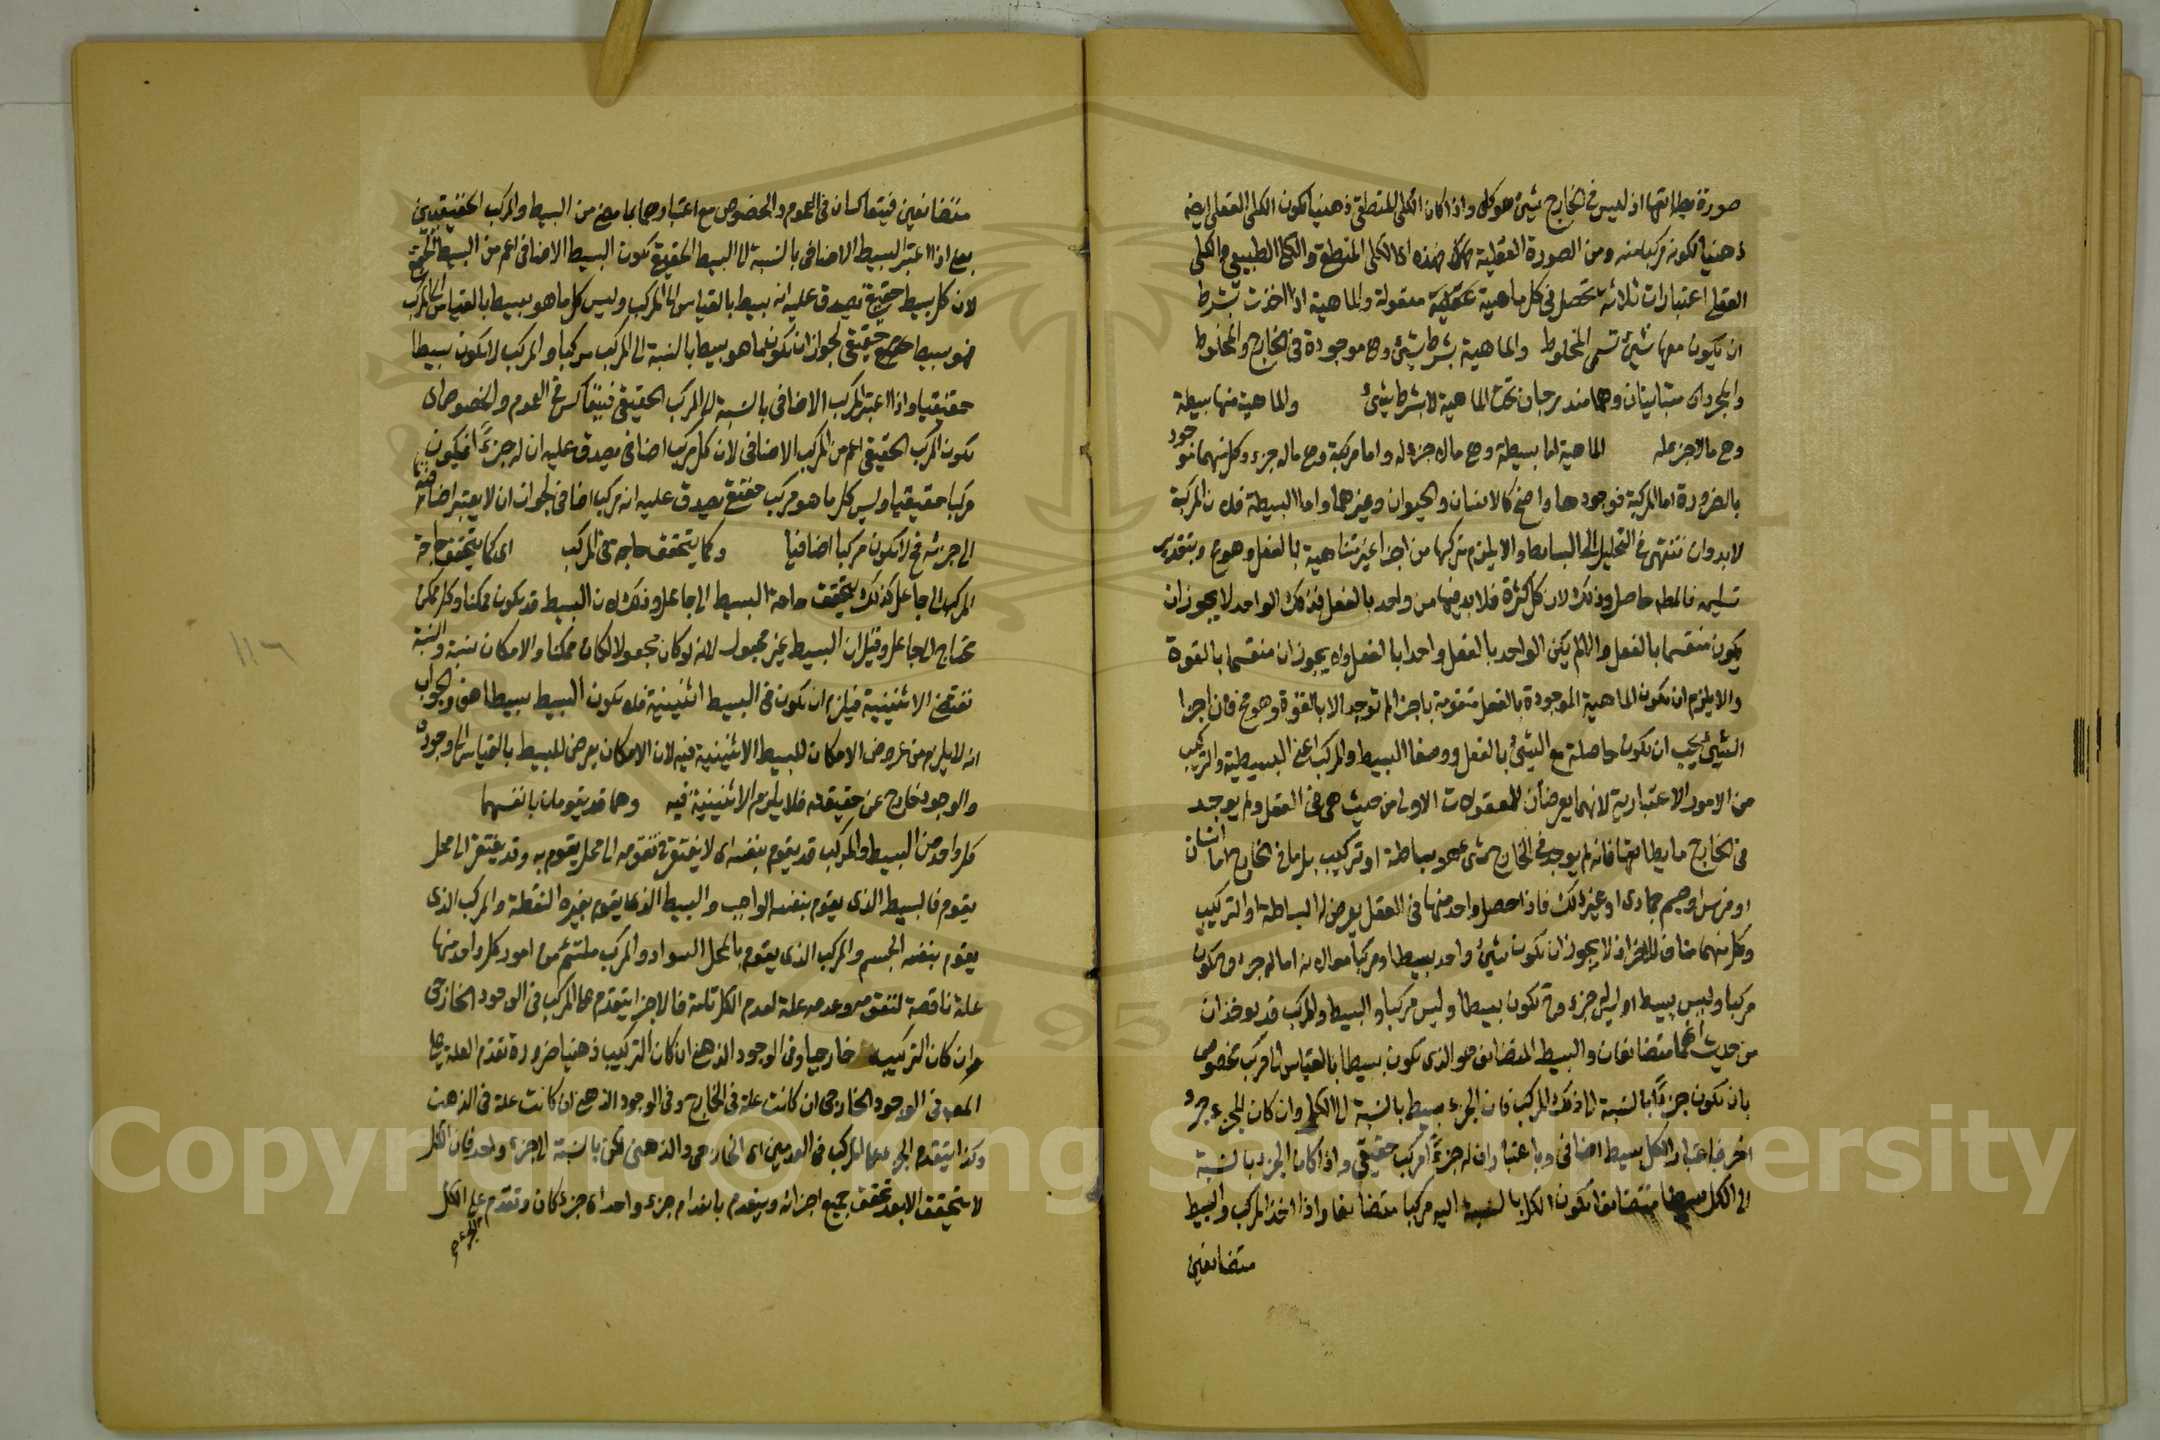 صورة يطابقها اذ ليس في الخارج شئ هو كلى واذا كان الكلى المنطقى ذهنيا يكون الكلى العقلى ايضا
ذهنيا لكونه مركبا منه ومن الصورة العقلية فهذه اى الكلى المنطقى والكلى الطبيعى والكلى
العقلى اعتبارات ثلاثة تحصل في كل ماهية عقلية معقولة والماهية اذا اخذت بشرط
ان يكون معها شئ تسمى المخلوط والماهية بشرط شئ وهى موجودة في الخارج والمخلوط
والمجرد اى متباينان وهما مندرجان تحت الماهية لا بشرط شئ والماهية منها بسيطة
وهى ما لا جزء له الماهية اما بسيطة وهى ما لا جزء له واما مركبة وهى ما له جزء وكل منهما موجود
بالضرورة اما المركبة فوجودها واضح كالانسان والحيوان وغيرهما واما البسيطة فلان المركبة
لابد وان تنتهى في التحليل الى البسائط والا يلزم تركبها من اجزا غير متناهية بالفعل وهو مح وبتقدير
تسليمه فالمط حاصل وذلك لان كل كثرة فلابد فيها من واحد بالفعل فذلك الواحد لا يجوز ان
يكون منقسما بالفعل والا لم يكن الواحد بالفعل واحدا بالفعل ولا يجوز ان منقسما بالقوة
والا يلزم ان يكون الماهية الموجودة بالفعل متقومة باجزا لم توجد الا بالقوة وهو مح فان اجزا
الشئ يجب ان يكون حاصلة مع الشئ بالفعل ووصفا البسيط والمركب اعنى البسيطية والتركيب
من الامور الاعتبارية لانهما يعرضان للمعقولات الاولى من حيث هى في العقل ولم يوجد
في الخارج ما يطابقها فانه لم يوجد في الخارج شئ هو بساطة او تركيب بل ما في الخارج اما انسان
او فرس او جسم جمادى او غير ذلك فاذا حصل واحد منها في العقل يعرض له البساطة او التركيب
وكل منهما مناف للاخر اذ لا يجوز ان يكون شئ واحد بسيطا ومركبا معا لانه اما له جزء فيكون
مركبا وليس ببسيط او ليس له جزء وح يكون بسيطا وليس مركبا والبسيط والمركب قد يوخذان
من حيث انهما متضائفان والبسيط المتضائف هو الذى يكون بسيطا بالقياس الى مركب مخصوص
بان يكون جزءا بالنسبة الى ذلك المركب فان الجزء بسيط بالنسبة الى الكل وان كان للجزء جزء
اخر فباعتبار الكل بسيط اضافى وباعتبار ان له جزءا مركب حقيقى واذا كان الجزء بالنسبة
الى الكل بسيطا متضائفا يكون الكل بالنسبة اليه مركبا متضائفا واذا اخذ المركب والبسيط
متضائفين
متضائفين فيتعاكسان في العموم والخصوص مع اعتبارهما بما مضى من البسيط والمركب الحقيقيين
يعنى اذا اعتبر البسيط الاضافى بالنسبة الى البسيط الحقيقى يكون البسيط الاضافى اعم من البسيط الحقيقى
لان كل بسيط حقيقى يصدق عليه انه بسيط بالقياس الى المركب وليس كل ما هو بسيط بالقياس الى المركب
فهو بسيط حقيقى لجواز ان يكون ما هو بسيطا بالنسبة الى المركب مركبا والمركب لا يكون بسيطا
حقيقيا واذا اعتبر المركب الاضافى بالنسبة الى المركب الحقيقى فيتعاكس في العموم والخصوص اى
يكون المركب الحقيقى اعم من المركب الاضافى لان كل مركب اضافى يصدق عليه ان له جزءا فيكون
مركبا حقيقيا وليس كل ما هو مركب حقيقى يصدق عليه انه مركب اضافى لجواز ان لا يعتبر اضافته
الى جزئه فح لا يكون مركبا اضافيا وكما يتحقق حاجة في المركب اى كما يتحقق حاجة
المركب الى جاعل كذلك يتحقق حاجة البسيط الى جاعل وذلك لان البسيط قد يكون ممكنا وكل ممكن
محتاج الى جاعل وقيل ان البسيط غير مجعول لانه لو كان مجعولا لكان ممكنا والامكان نسبة والنسبة
تقتضى الاثنينية فيلزم ان يكون في البسيط اثنينية فلا يكون البسيط بسيطا هف والجواب
انه لا يلزم من عروض الامكان للبسيط الاثنينية فيه لان الامكان يعرض للبسيط بالقياس الى وجوده
والوجود خارج عن حقيقته فلا يلزم الاثنينية فيه وهما قد يقومان بانفسهما
كل واحد من البسيط والمركب قد يقوم بنفسه اى لا يفتقر في تقومه الى محل يقوم به وقد يفتقر الى محل
يقوم فالبسيط الذى يقوم بنفسه الواجب والبسيط الذى يقوم بغيره النقطة والمركب الذى
يقوم بنفسه الجسم والمركب الذى يقوم بالمحل السواد والمركب ملتئم من امور كل واحد منها
علة ناقصة لتقومه وعدمه علة لعدم الكل تامة فالاجزا يتقدم على المركب في الوجود الخارجى
ان كان التركيب خارجيا وفى الوجود الذهنى ان كان التركيب ذهنيا ضرورة تقدم العلة على
المعلول في الوجود الخارجى ان كانت علة في الخارج وفى الوجود الذهنى ان كانت علة في الذهن
وكذا يتقدم الجزء على المركب في العدمين اى الخارجى والذهنى لكن بالنسبة الى جزء واحد فان الكل
لا يتحقق الا بعد تحقق جميع اجزائه وينعدم بانعدام جزء واحد اى جزء كان وتقدم على الكل
الجزء
١١٦
Copyright © King Saud University
1957